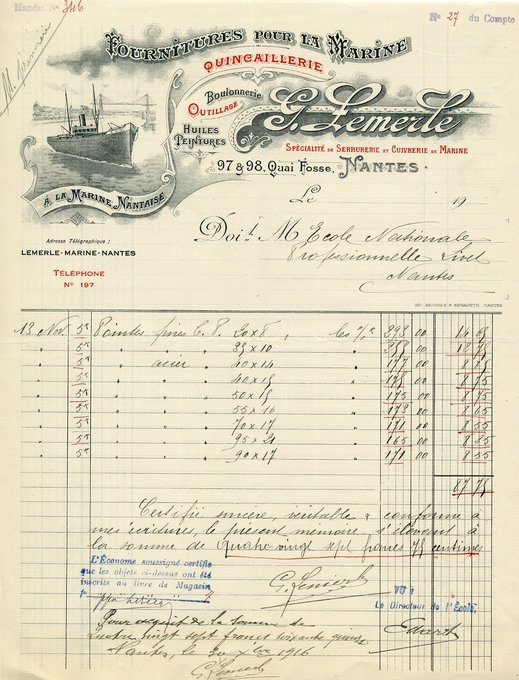 Mandat N° 346
N° 27 du Compte
FOURNITURES POUR LA MARINE
QUINCAILLERIE
Boulonnerie
OUTILLAGE
HUILES
PEINTURES
G. Lemerle
SPÉCIALITÉ DE SERRURERIE ET CUIVRERIE DE MARINE
97 & 98, Quai Fosse, NANTES.
Á LA MARINE NANTAISE
Le 19
Adresse Télégraphique :
LEMERLE-MARINE-NANTES
TÉLÉPHONE
N° 197
Doit M Ecole Nationale
Professionnelle Livet
Nantes
13 Nov. 5k Pointes fines C.P. 20x8, les %o 293 00 14 65
" 5k " " " 35x10 " 255 00 12 75
" 5k " acier " 40x14 " 175 00 8 75
" 5k " " " 40x15 " 175 00 8 75
" 5k " " " 50x15 " 175 00 8 75
" 5k " " " 55x16 " 173 00 8 65
" 5k " " " 70x17 " 171 00 8 55
" 5k " " " 95x21 " 165 00 8 25
" 5k " " " 90x17 " 171 00 8 55
87 75
Certifié sincère, véritable & conforme à
mes écritures, le présent mémoire s'élevant à
la somme de quatre vingt sept francs 75 centimes
L'Économe soussigné certifie
que les objets ci-dessus ont été
inscrits au livre de Magasin
G. Lemerle
VU :
Le Directeur de l'École,
Pour acquit de la somme de
Quatre vingt sept francs soixante quinze
Nantes, le 30 Xbre 1916
G. Lemerle